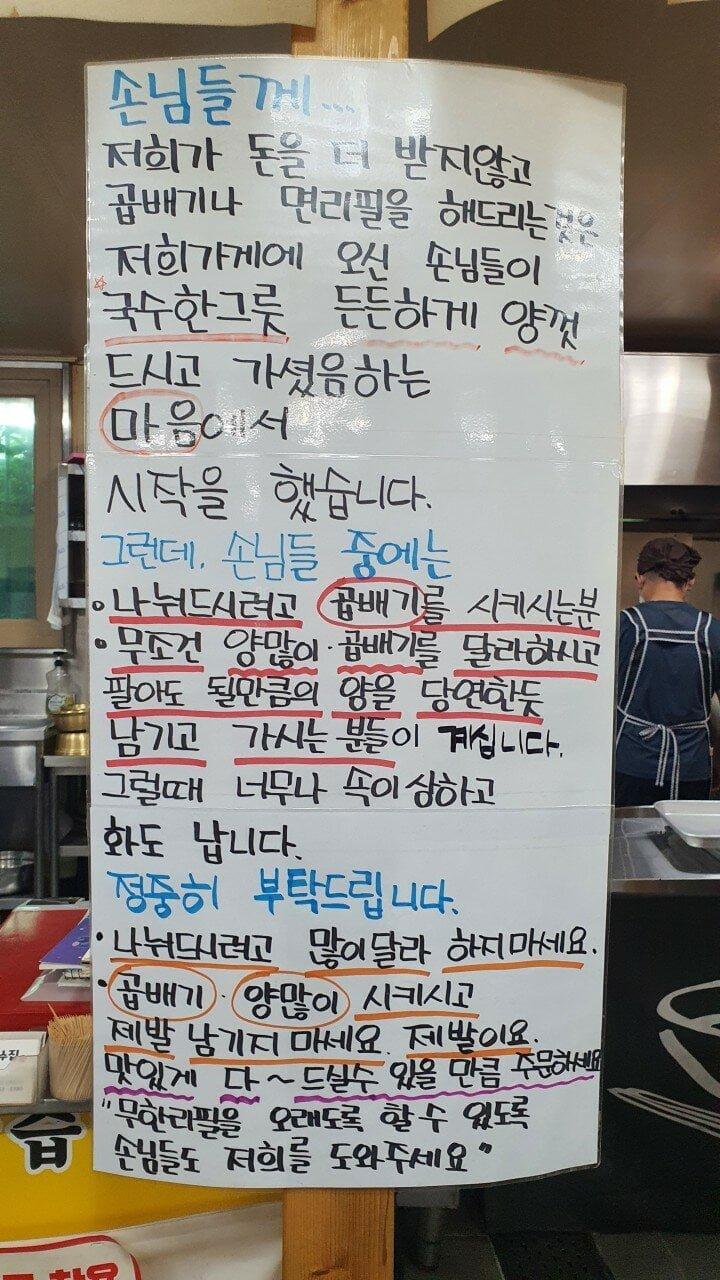 손님들께...
저희가 돈을 더 받지않고
곱배기나 면리필을 해드리는것은
저희가게에 오신 손님들이
국수한그릇 든든하게 양껏
드시고 가셨음하는
마음에서
시작을 했습니다.
그런데, 손님들 중에는
• 나눠드시려고 곱배기를 시키시는분
• 무조건 양많이·곱배기를 달라하시고
팔아도 될만큼의 양을 당연한듯
남기고 가시는 분들이 계십니다.
그럴때 너무나 속이상하고
화도 납니다.
정중히 부탁드립니다.
• 나눠드시려고 많이달라 하지마세요.
• 곱배기·양많이 시키시고
제발 남기지 마세요. 제발이요.
맛있게 다~ 드실수 있을 만큼 주문하세요
"무한리필을 오래도록 할 수 있도록
손님들도 저희를 도와주세요"
수집
습